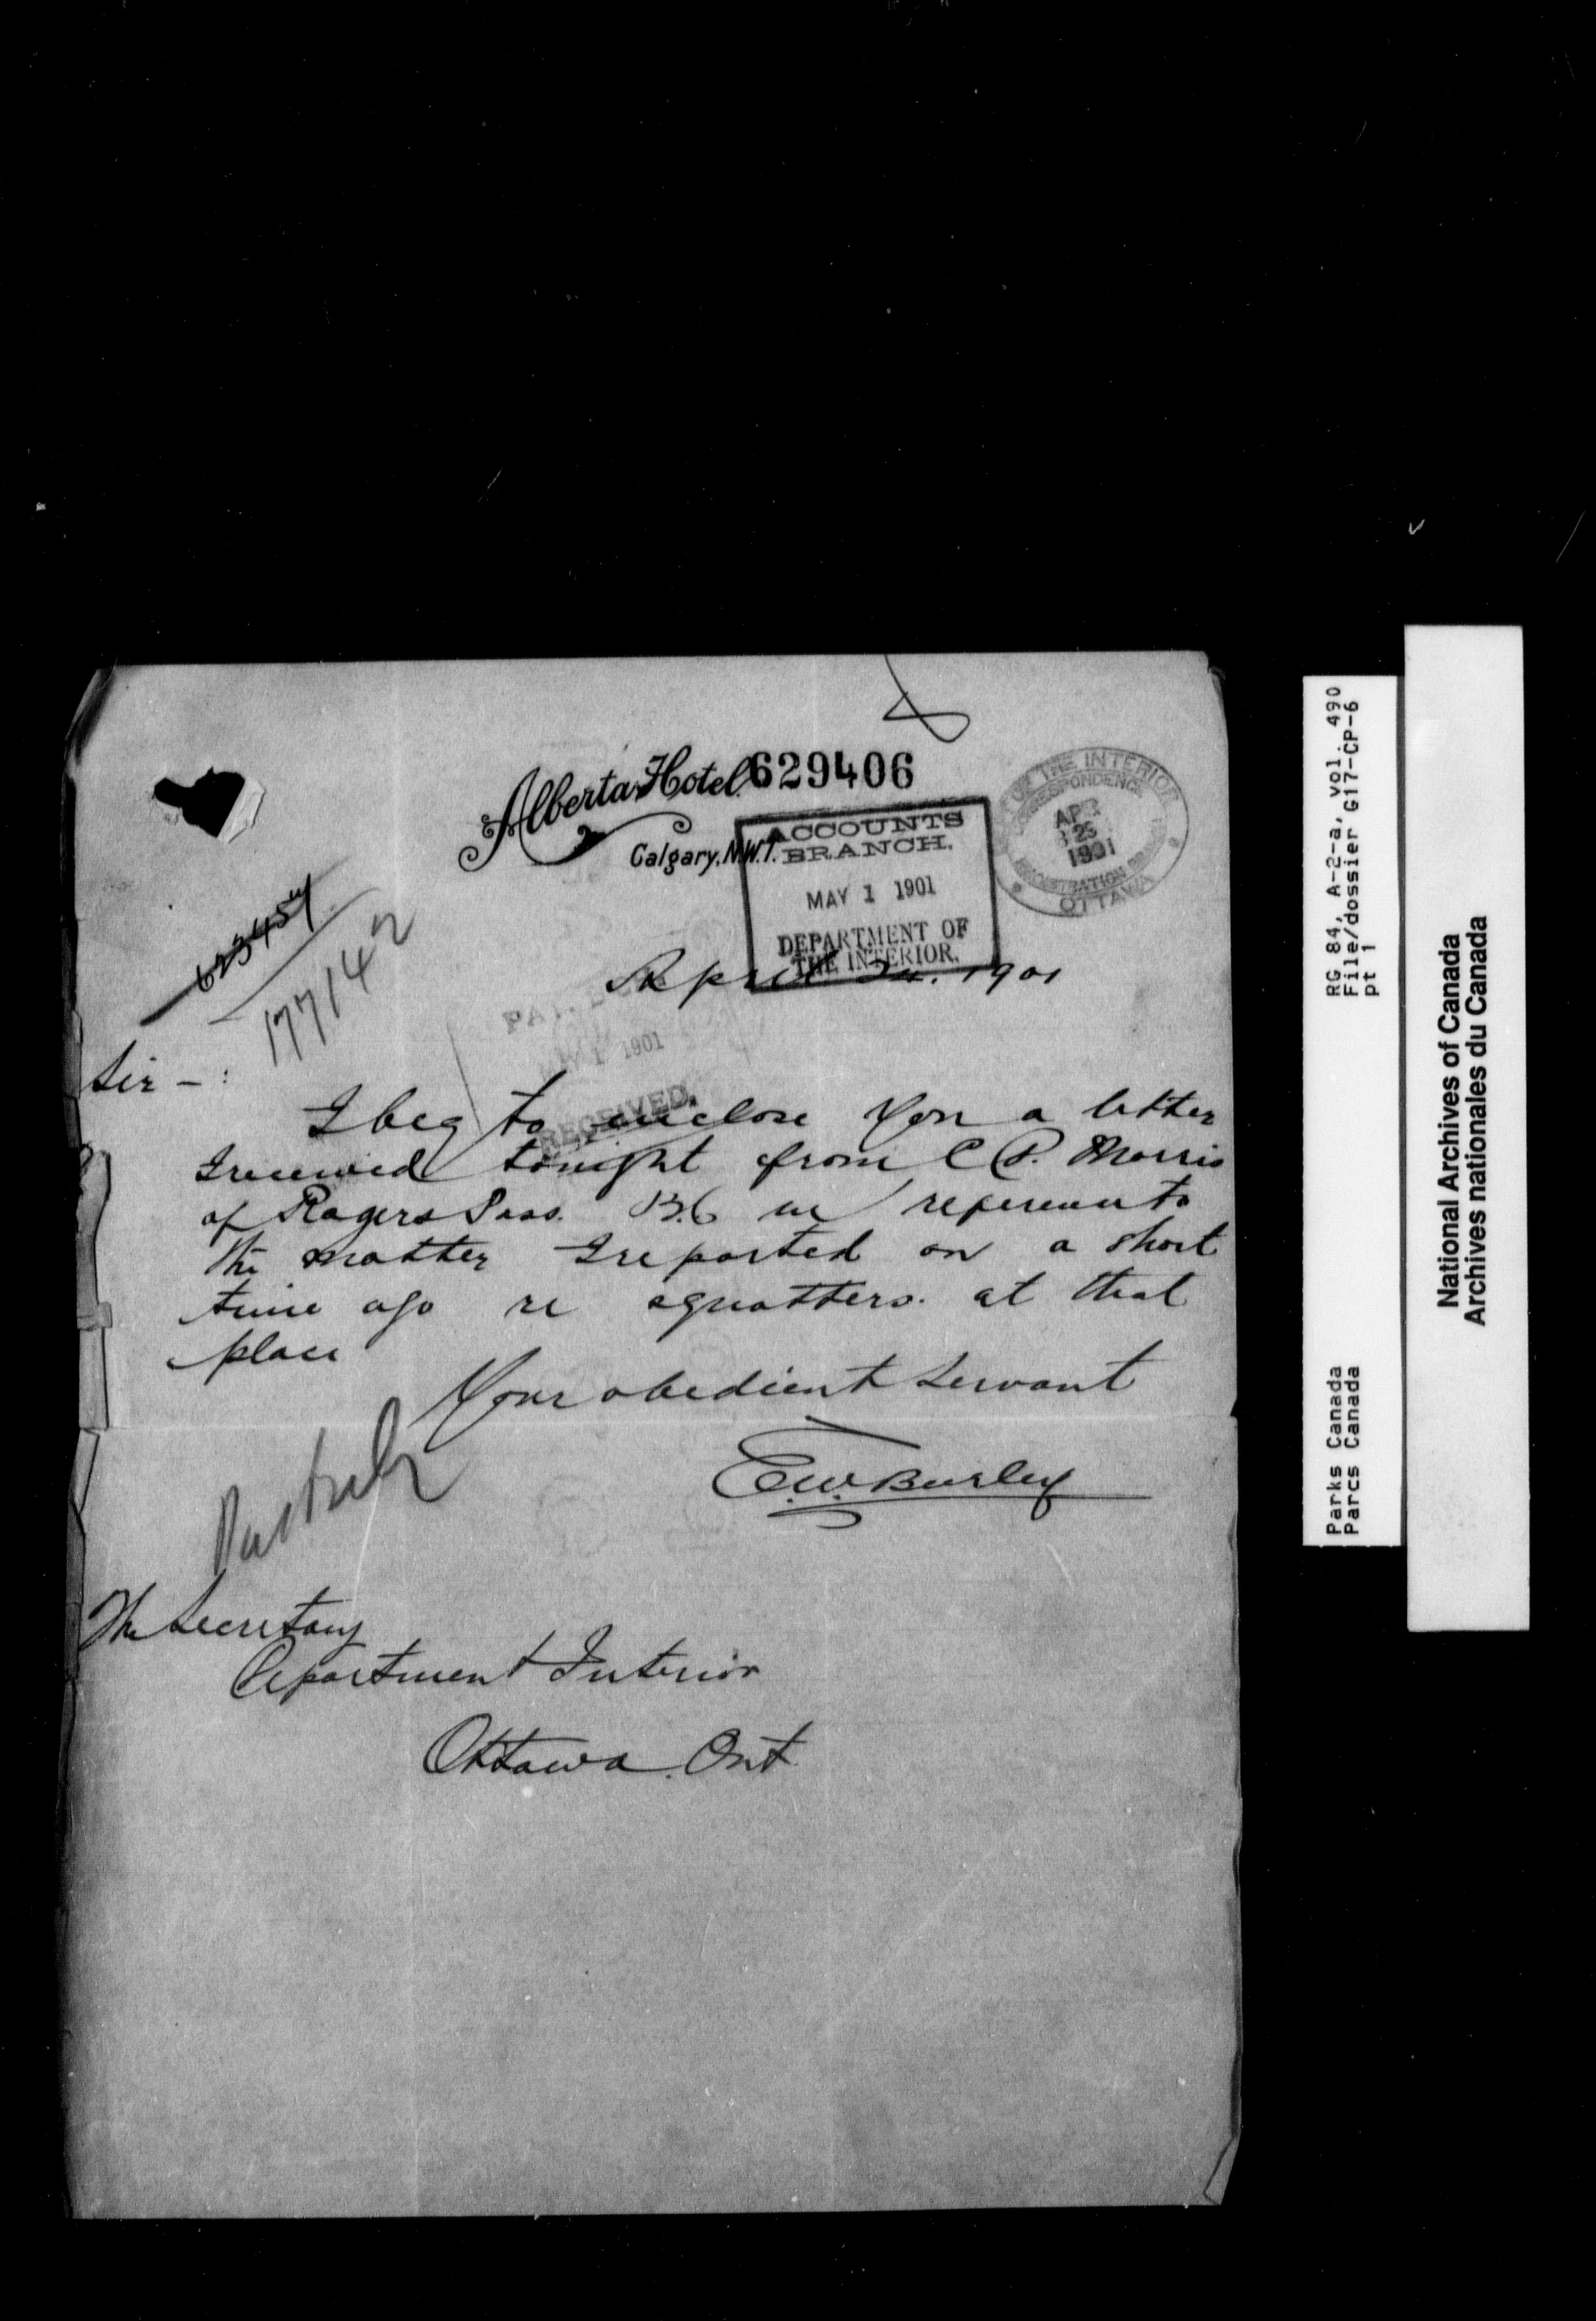 Alberta Hotel.
629406
Calgary, N.W.T.
ACCOUNTS
BRANCH.
MAY 1 1901
DEPARTMENT OF
THE INTERIOR.
OF THE INTERIOR
CORRESPONDENCE
25
1901
REGISTRATION
OTTAWA
623454
177142
April 1901
1 1901
RECEIVED.
Sir -:
I beg to enclose you a letter
I received tonight from C P. Morris
of Rogers Pass. B.C in reference to
the matter I reported on a short
time ago re squatters. at that
place
Your obedient Servant
E.W. Burley
The Secretary
Department Interior
Ottawa. Ont.
RG 84, A-2-a, vol. 490
File/dossier G17-CP-6
pt 1
Parks Canada
Parcs Canada
National Archives of Canada
Archives nationales du Canada